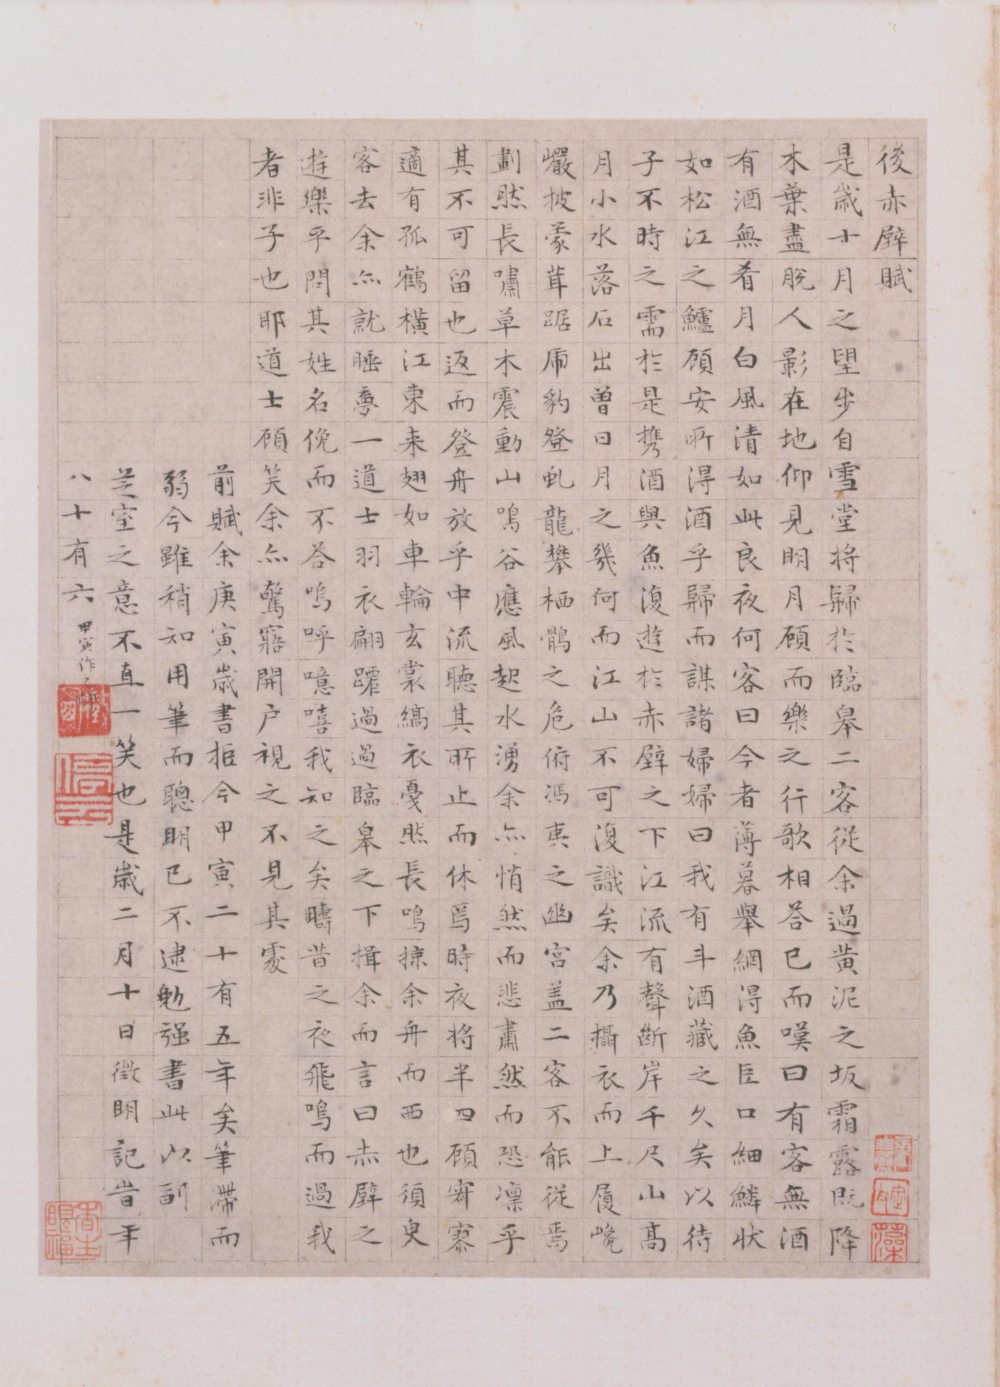 後赤壁賦
是歲十月之望步自雪堂將歸於臨皋二客從余過黄泥之坂霜露既降
木葉盡脱人影在地仰見明月顧而樂之行歌相荅已而嘆曰有客無酒
有酒無肴月白風清如此良夜何客曰今者薄暮舉網得魚巨口細鱗狀
如松江之鱸顧安所得酒乎歸而謀諸婦婦曰我有斗酒藏之久矣以待
子不時之需於是携酒與魚復遊於赤壁之下江流有聲斷岸千尺山高
月小水落石出曾日月之幾何而江山不可復識矣余乃攝衣而上履巉
巖披蒙茸踞虎豹登虬龍攀栖鶻之危俯馮夷之幽宮盖二客不能從焉
劃然長嘯草木震動山鳴谷應風起水湧余亦悄然而悲肅然而恐凛乎
其不可留也返而登舟放乎中流聽其所止而休焉時夜将半四顧寂寥
適有孤鶴橫江東来翅如車輪玄裳縞衣戛然長鳴掠余舟而西也須臾
客去余亦就睡夢一道士羽衣翩躚過過臨皋之下揖余而言曰赤壁之
遊樂乎問其姓名俛而不荅嗚呼噫嘻我知之矣疇昔之夜飛鳴而過我
者非子也耶道士顧笑余亦驚寤開户視之不見其處
前賦余庚寅歲書拒今甲寅二十有五年矣筆滯而
弱今雖稍知用筆而聰明已不逮勉强書此以副
芝室之意不直一笑也是歲二月十日徵明記昔年
八十有六
甲寅作
停雲